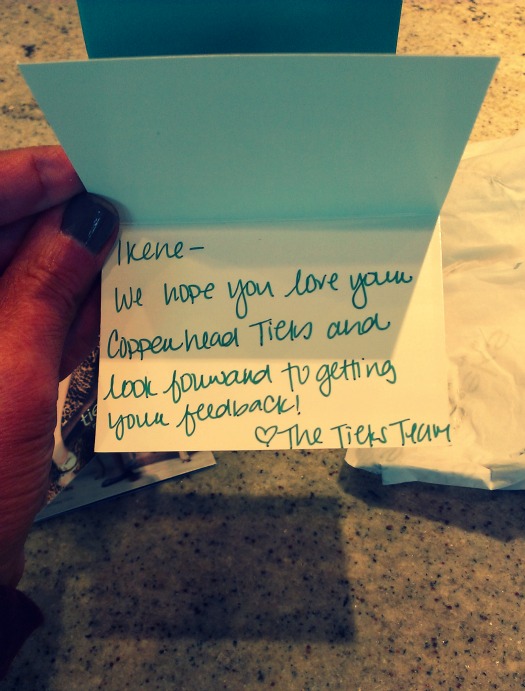 Ikene-
We hope you love your
Copperhead Tieks and
look forward to getting
your feedback!
♡ The Tieks Team